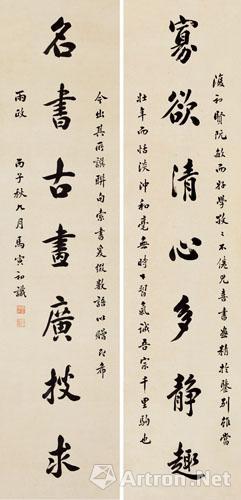 復初賢阮敏而好學孜々不倦尤喜書畫精於鑒別雖當
寡欲清心多静趣
壯年而恬淡沖和毫無時下習氣誠吾宗千里駒也
今出其所譔聯句索書爰綴數語以贈即希
名書古畫廣搜求
雨政 丙子秋九月馬寅初識
Artron.Net